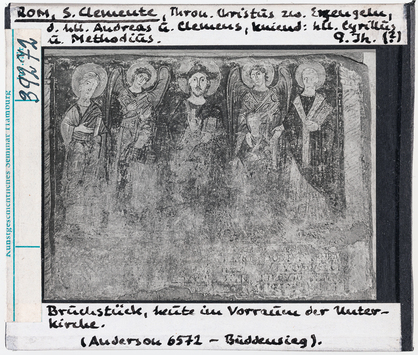 ROM, S. Clemente, Thron. Christus zw. Erzengeln,
d. hll. Andreas u. Clemens, kniend: hll. Cyrillus
u. Methodius. 9. Jh. (?)
Kunstgeschichtliches Seminar Hamburg
Bruchstück, heute im Vorraum der Unter-
kirche.
(Anderson 6572 - Buddensieg).